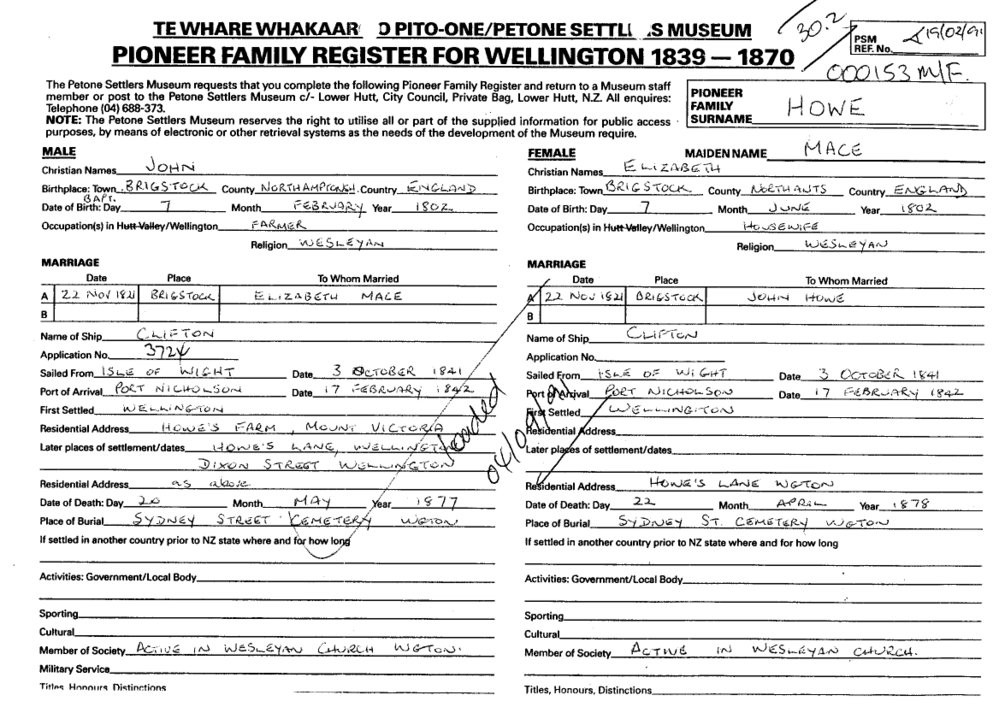 TE WHARE WHAKAAR O PITO-ONE/PETONE SETTL .S MUSEUM
PIONEER FAMILY REGISTER FOR WELLINGTON 1839 — 1870
30.2
PSM REF. No. 19/02/91
000153 M/F.
The Petone Settlers Museum requests that you complete the following Pioneer Family Register and return to a Museum staff
member or post to the Petone Settlers Museum c/- Lower Hutt, City Council, Private Bag, Lower Hutt, N.Z. All enquires:
Telephone (04) 688-373.
NOTE: The Petone Settlers Museum reserves the right to utilise all or part of the supplied information for public access
purposes, by means of electronic or other retrieval systems as the needs of the development of the Museum require.
PIONEER
FAMILY
SURNAME HOWE
MALE
Christian Names JOHN
Birthplace: Town BRIGSTOCK County NORTHAMPTONSH. Country ENGLAND
BAPT.
Date of Birth: Day 7 Month FEBRUARY Year 1802
Occupation(s) in Hutt Valley/Wellington FARMER
Religion WESLEYAN
MARRIAGE
Date Place To Whom Married
A 22 NOV 1821 BRIGSTOCK ELIZABETH MACE
B
Name of Ship CLIFTON
Application No. 3724
Sailed From ISLE OF WIGHT Date 3 OCTOBER 1841
Port of Arrival PORT NICHOLSON Date 17 FEBRUARY 1842
First Settled WELLINGTON
Residential Address HOWE'S FARM, MOUNT VICTORIA
Later places of settlement/dates HOWE'S LANE, WELLINGTON
DIXON STREET WELLINGTON
Residential Address as above
Date of Death: Day 20 Month MAY Year 1877
Place of Burial SYDNEY STREET CEMETERY WGTON
If settled in another country prior to NZ state where and for how long
Activities: Government/Local Body
Sporting
Cultural
Member of Society ACTIVE IN WESLEYAN CHURCH WGTON.
Military Service
Titles, Honours, Distinctions
loaded
FEMALE MAIDEN NAME MACE
Christian Names ELIZABETH
Birthplace: Town BRIGSTOCK County NORTHANTS Country ENGLAND
Date of Birth: Day 7 Month JUNE Year 1802
Occupation(s) in Hutt Valley/Wellington HOUSEWIFE
Religion WESLEYAN
MARRIAGE
Date Place To Whom Married
A 22 NOV 1821 BRIGSTOCK JOHN HOWE
B
Name of Ship CLIFTON
Application No.
Sailed From ISLE OF WIGHT Date 3 OCTOBER 1841
Port of Arrival PORT NICHOLSON Date 17 FEBRUARY 1842
First Settled WELLINGTON
Residential Address
Later places of settlement/dates
Residential Address HOWE'S LANE WGTON
Date of Death: Day 22 Month APRIL Year 1878
Place of Burial SYDNEY ST. CEMETERY WGTON
If settled in another country prior to NZ state where and for how long
Activities: Government/Local Body
Sporting
Cultural
Member of Society ACTIVE IN WESLEYAN CHURCH.
Titles, Honours, Distinctions